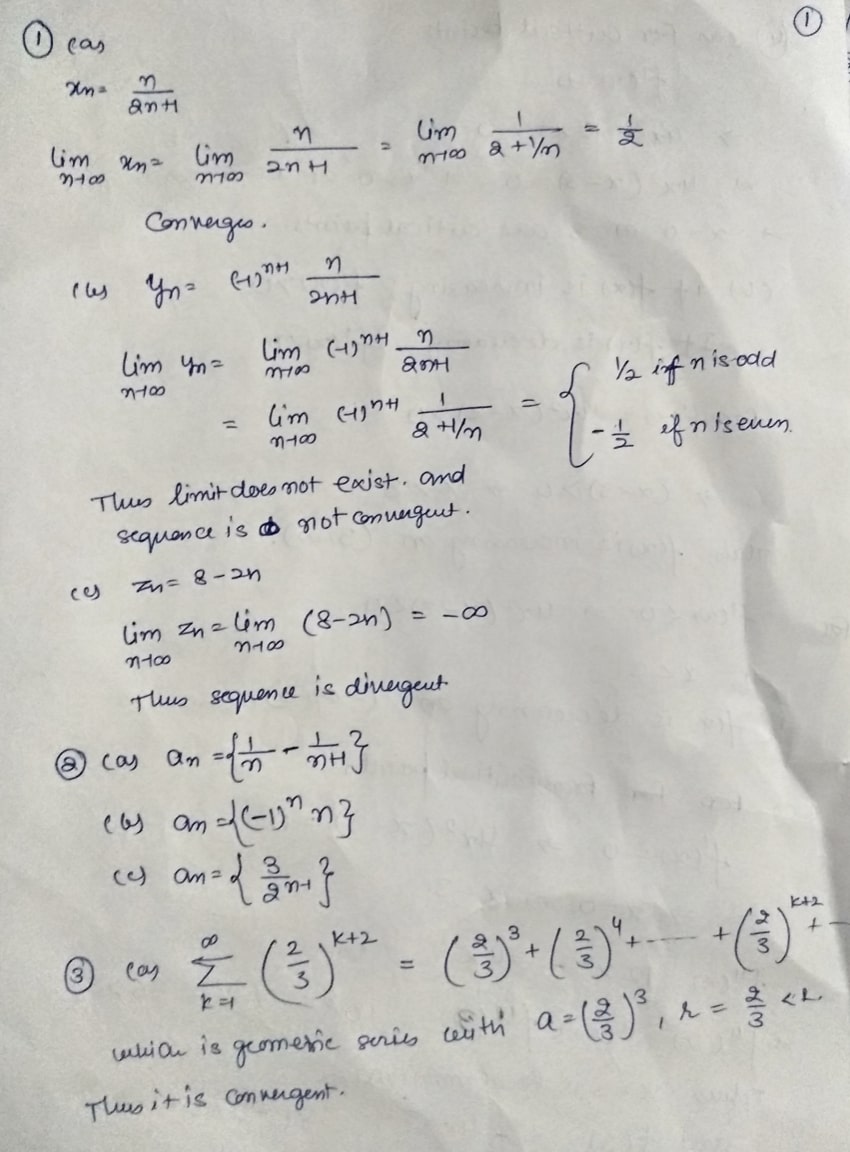 ① (a)
①
xₙ = n/(2n+1)
lim n→∞ xₙ = lim n→∞ n/(2n+1) = lim n→∞ 1/(2+1/n) = 1/2
Converges.
(b) yₙ = (-1)ⁿ⁺¹ n/(2n+1)
lim n→∞ yₙ = lim n→∞ (-1)ⁿ⁺¹ n/(2n+1)
= lim n→∞ (-1)ⁿ⁺¹ 1/(2+1/n) = { 1/2 if n is odd
-1/2 if n is even.
Thus limit does not exist. and
sequence is not convergent.
(c) zₙ = 8-2n
lim n→∞ zₙ = lim n→∞ (8-2n) = -∞
Thus sequence is divergent
② (a) aₙ = {1/n - 1/(n+1)}
(b) aₙ = {(-1)ⁿ n}
(c) aₙ = {3/2ⁿ⁻¹}
③ (a) ∑ k=1 ∞ (2/3)ᵏ⁺² = (2/3)³ + (2/3)⁴ + ------ + (2/3)ᵏ⁺² + --
which is geomeric series with a = (2/3)³, r = 2/3 < 1.
Thus it is convergent.